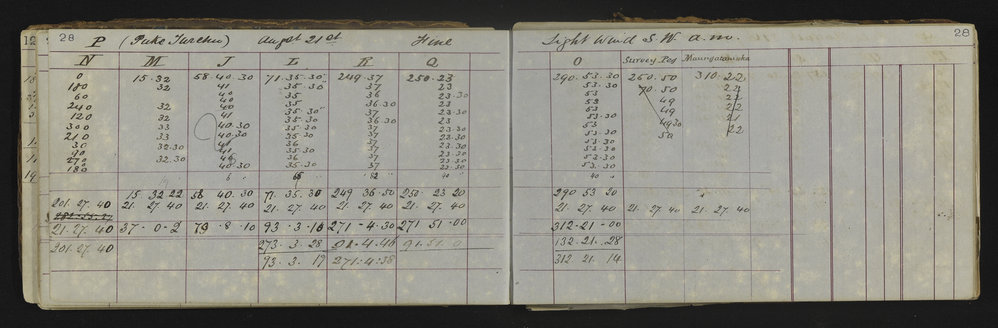 28 P (Puke Turehu) August 21st Fine
Light Wind S.W. a.m. 28
N M J L R Q O Survey Peg Maungatawaka
0 15.32 58.40.30 71.35.30 249.37 250.23 290.53.30 250.50 310.22
180 32 41 35.30 37 23 53.30 70.50 22
60 40 35 36 23.30 53 49 22
240 32 40 35 36.30 23 53 49 22
120 32 41 35.30 37 23.30 53.30 21
300 33 40.30 35.30 37 23 53 49.30 22
210 33 40.30 35.30 37 23.30 53.30 50
30 32.30 41 36 37 23.30 53.30
90 41 35.30 37 23.30 53.30
270 32.30 40 36 37 23.30 53.30
180 40.30 35.30 37 53.30
15.32 22 58 40.30 71.35.30 249 36 50 250 23 20 290 53 20
201.27.40 21.27.40 21.27.40 21.27.40 21.27.40 21.27.40 21.27.40 21.27.40 21.27.40
21.27.40 37-0-2 79.8.10 93.3.10 271-4.30 271 51.00 312-21-00
201.27.40 273.3.28 91.51 0 132.21.28
93.3.19 271.4.38 312 21 14